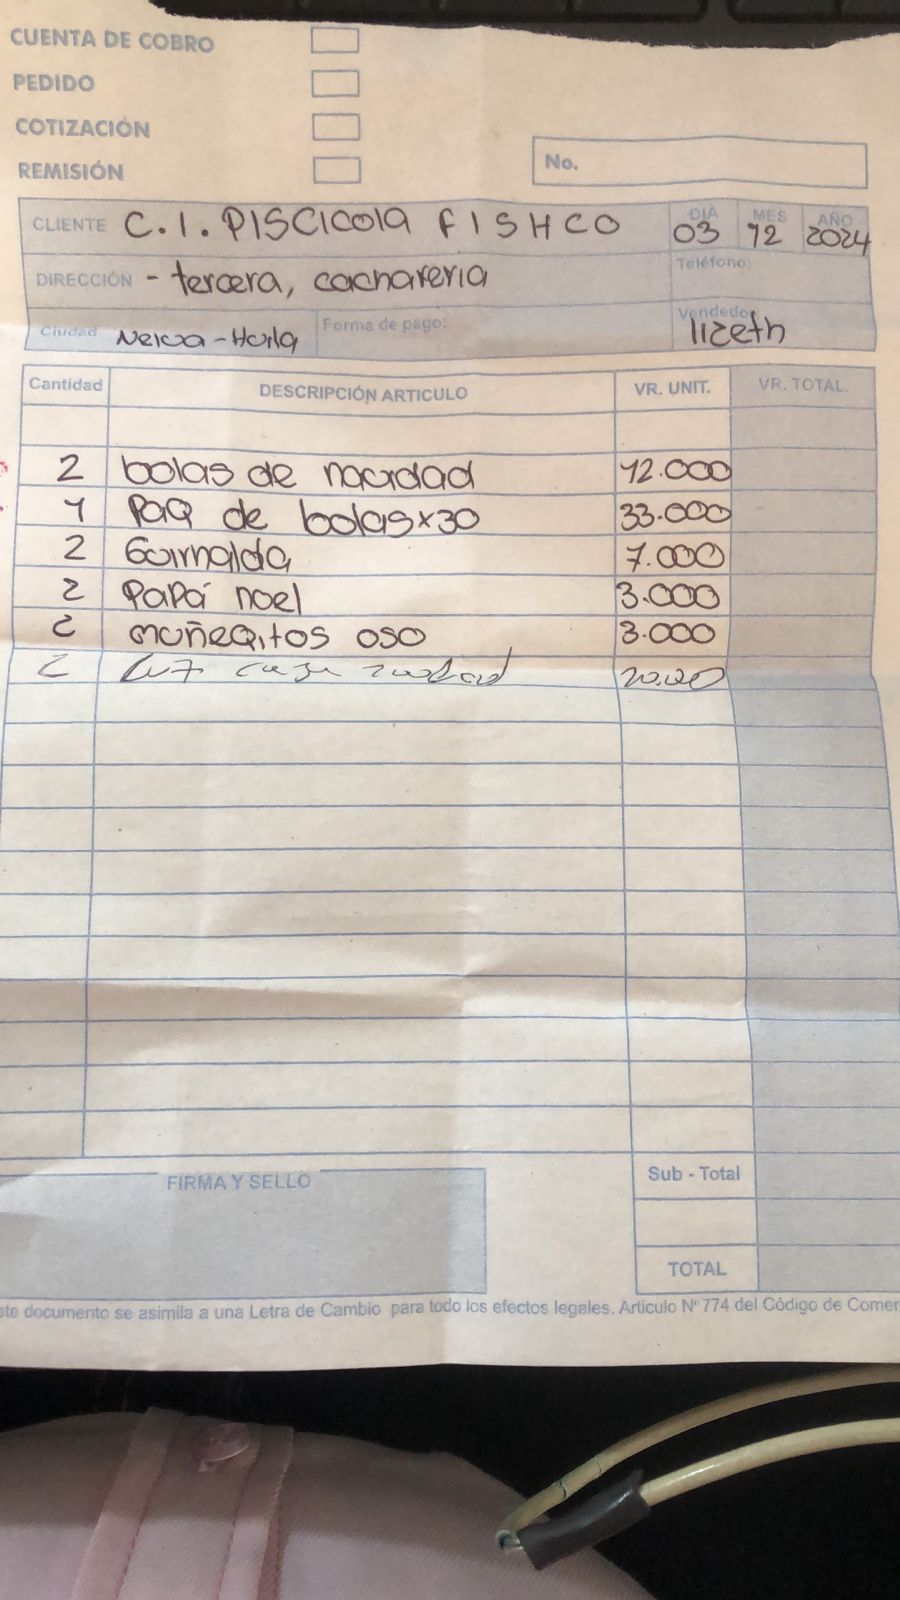 CUENTA DE COBRO
PEDIDO
COTIZACIÓN
REMISIÓN
No.
CLIENTE C.I. PISCICOLA FISHCO DIA 03 MES 12 AÑO 2024
DIRECCIÓN - tercera, cacharreria Teléfono:
Ciudad Neiva-Huila Forma de pago: Vendedor lizeth
Cantidad DESCRIPCIÓN ARTICULO VR. UNIT. VR. TOTAL
2 bolas de navidad 12.000
1 Paq de bolas x30 33.000
2 Guirnalda 7.000
2 Papá noel 3.000
2 muñeqitos oso 3.000
2 Luz
Sub - Total
FIRMA Y SELLO
TOTAL
ste documento se asimila a una Letra de Cambio para todo los efectos legales. Articulo Nº 774 del Código de Comer